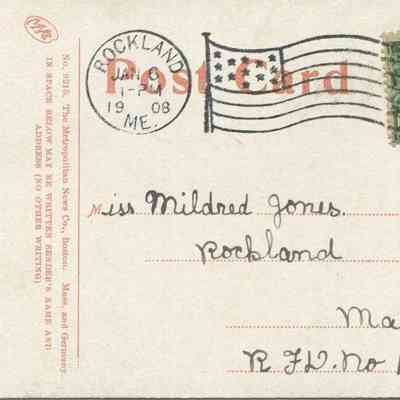 ROCKLAND
JAN 6
1-PM
19 08
ME.
Post Card
No. 9215. The Metropolitan News Co., Boston. Mass. and Germany
IN SPACE BELOW MAY BE WRITTEN SENDER'S NAME AND
ADDRESS (NO OTHER WRITING)
Miss Mildred Jones.
Rockland
Ma
R.F.D. No